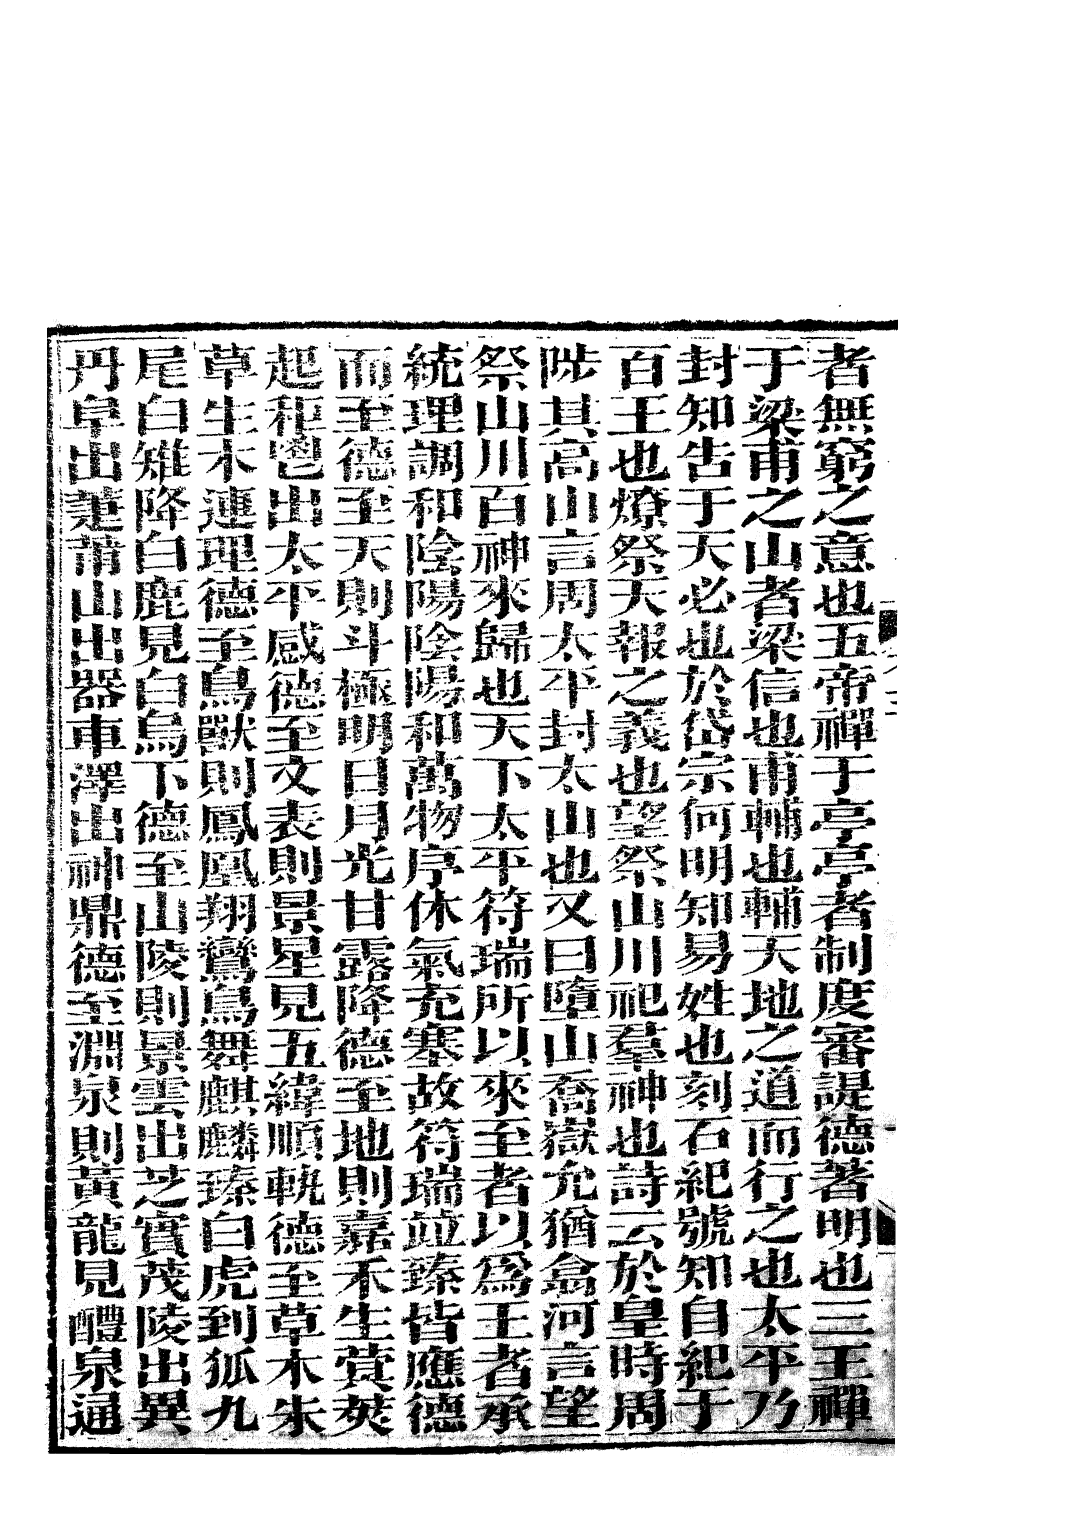 者無窮之意也五帝禪于亭亭者制度審諟德著明也三王禪
于梁甫之山者梁信也甫輔也輔天地之道而行之也太平乃
封知告于天必也於岱宗何明知易姓也刻石紀號知自紀于
百王也燎祭天報之義也望祭山川祀羣神也詩云於皇時周
陟其高山言周太平封太山也又曰墮山喬嶽允猶翕河言望
祭山川百神來歸也天下太平符瑞所以來至者以爲王者承
統理調和陰陽陰陽和萬物序休氣充塞故符瑞竝臻皆應德
而至德至天則斗極明日月光甘露降德至地則嘉禾生蓂莢
起秬鬯出太平感德至文表則景星見五緯順軌德至草木朱
草生木連理德至鳥獸則鳳凰翔鸞鳥舞麒麟臻白虎到狐九
尾白雉降白鹿見白烏下德至山陵則景雲出芝實茂陵出異
丹阜出萐莆山出器車澤出神鼎德至淵泉則黃龍見醴泉通